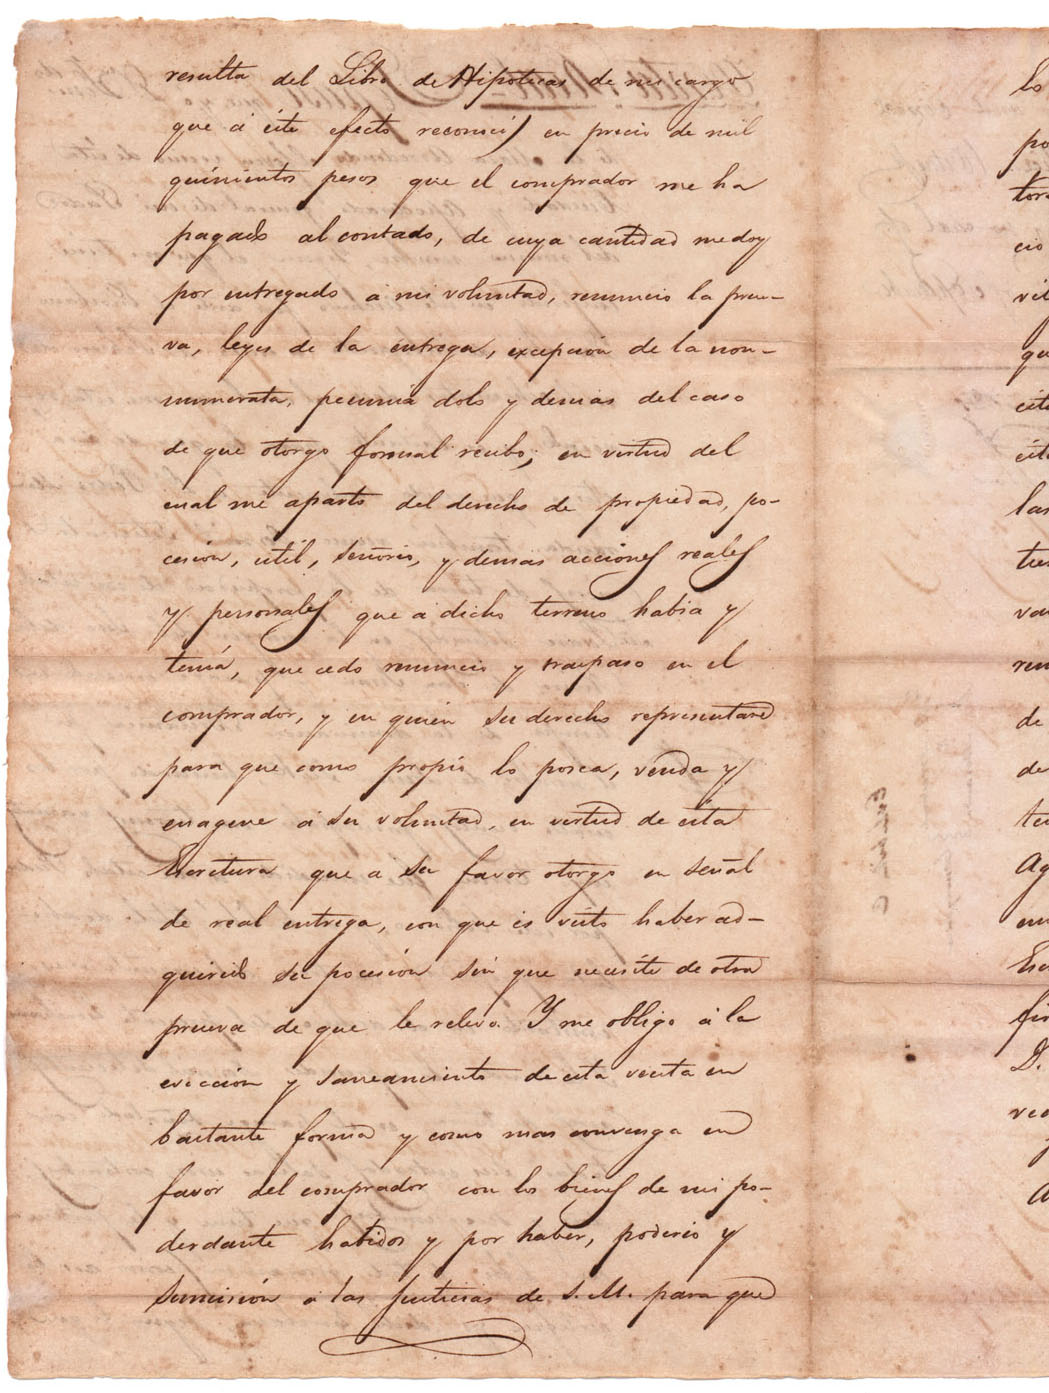 resulta del Libro de Hipotecas de mi cargo
que á este efecto reconocí) en precio de mil
quinientos pesos que el comprador me ha
pagado al contado, de cuya cantidad me doy
por entregado á mi voluntad, renuncio la prue-
va, leyes de la entrega, excepción de la non-
numerata, pecunia dolo y demas del caso
de que otorgo formal recibo; en virtud del
cual me aparto del derecho de propiedad, po-
cesión, util, señorio, y demas acciones reales
y personales que á dicho terreno habia y
tenía, que cedo renuncio y traspaso en el
comprador, y en quien su derecho representare
para que como propio lo posea, venda y
enagene á su voluntad, en virtud de esta
Escritura que a su favor otorgo en señal
de real entrega, con que es visto haber ad-
quirido su pocesión sin que necesite de otra
prueva de que le relevo. Y me obligo á la
evicción y saneamiento de esta venta en
bastante forma y como mas convenga en
favor del comprador con los bienes de mi po-
derdante habidos y por haber, poderio y
sumisión á las Justicias de S. M. para que
lo
po
tor
cio
vil
qu
cita
las
va
ren
de
de
Ag
Esc
fir
D.